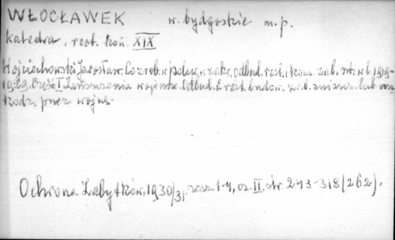 WŁOCŁAWEK w. bydgoskie m.p.
katedra, rest. kon. XIX
Wojciechowski Jarosław. Co zrob. w polsce w zakr. odbud. rest. i kons. zab. szt. w l. 1919-
1929. Część I Zniszczenia wojenne. Odbud. i rest. budow. zab. zniszcz. lub usz
kodz. przez wojnę.
Ochrona Zabytków, 1930/31, zesz 1-4, cz. II, str. 243-318 (262).